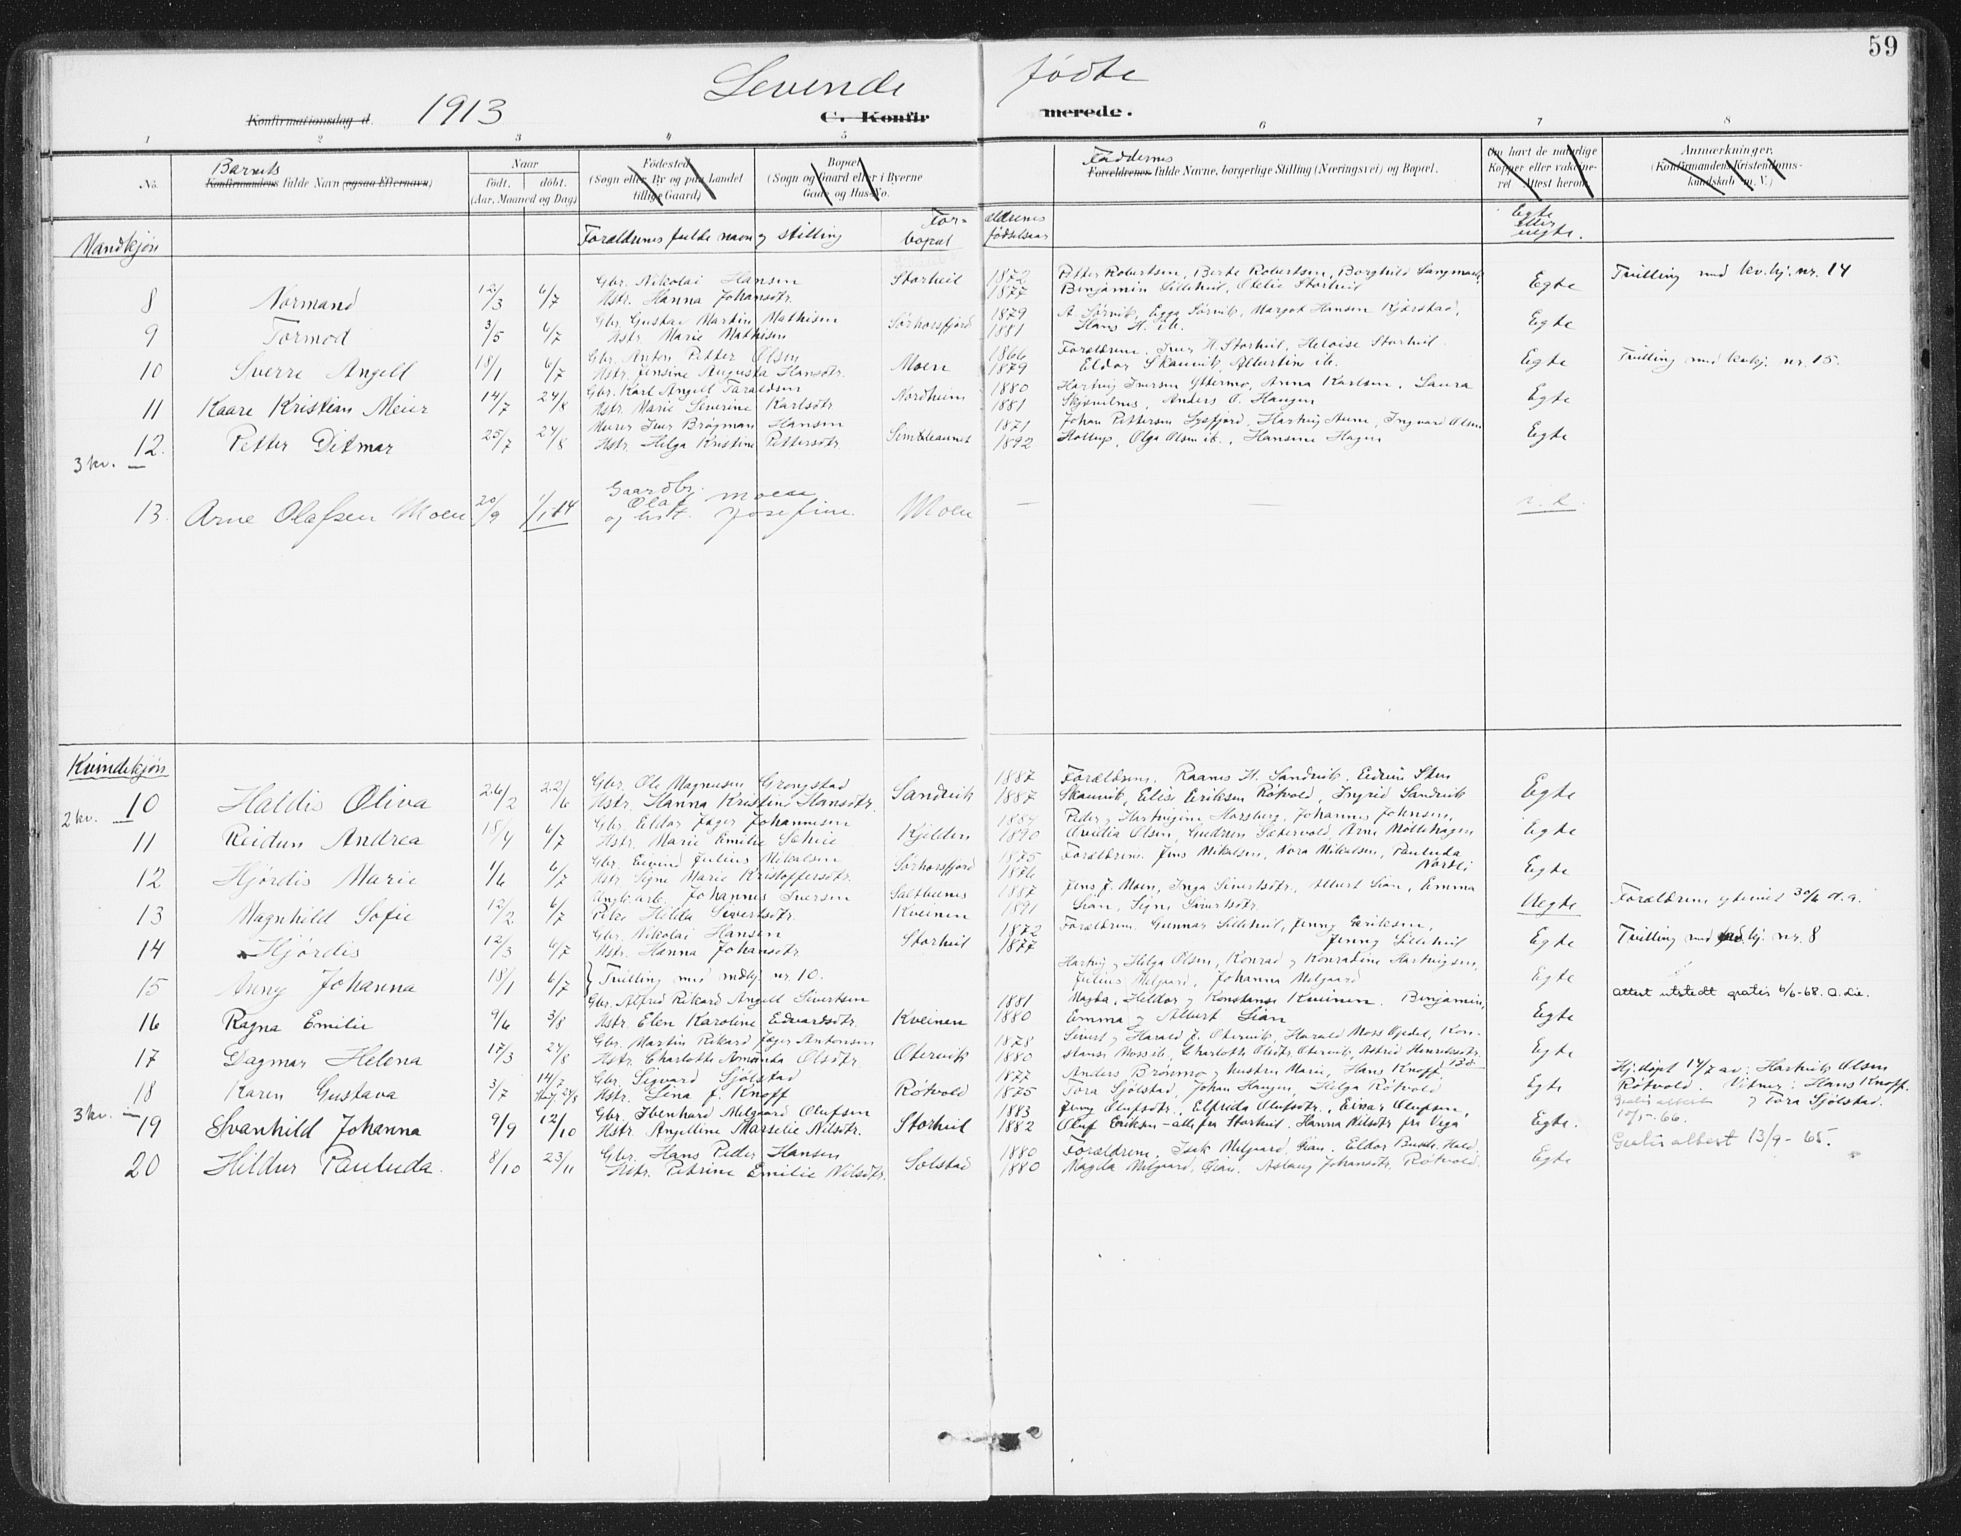 59
Levende fødte
Konfirmationsdag d. 1913 C. Konfirmerede.
1 2 3 4 5 6 7 8
No. Barnets Konfirmandens fulde Navn (ogsaa Efternavn)
Naar født. døbt. (Aar, Maaned og Dag)
Fødested (Sogn eller By og paa Landet tillige Gaard)
Bopæl (Sogn og Gaard eller i Byerne Gade og Hus-No.
Faddernes Forældrenes fulde Navne, borgerlige Stilling (Næringsvei) og Bopæl.
Om havt de naturlige Kopper eller vaksineret. Attest herom.
Anmærkninger. (Konfirmandens Kristendomskundskab m. V.)
Mandkjøn
Forældrenes fulde navn og stilling
For- bopæl
ældrenes fødselsaar
Egte eller uegte.
8 Normand 12/3 6/7 Gbr. Nikolai Hansen Storheil 1872 Petter Robertsen, Berte Robertsen, Borghild Langmark, Egte Tvilling med kv.kj. nr. 14
Hstr. Hanna Johansdtr. 1877 Benjamin Lilleheil, Otelie Storheil
9 Tormod 3/5 6/7 Gbr. Gustav Martin Mathisen Sørhorsfjord 1879 A. Sørvik, Egga Sørvik, Margot Hansen Kjærstad, Egte
Hstr. Marie Mathisen 1881 Hans H. ib.
10 Sverre Angell 18/1 6/7 Gbr. Anton Petter Olsen Moen 1866 Forældrene, Iver H. Storheil, Heloise Storheil. Egte Tvilling med kvkj. nr. 15.
Hstr. Jensine Augusta Hansdtr. 1879 Eldor Skaanvik, Albertine ib.
11 Kaare Kristian Meier 14/7 24/8 Gbr. Karl Angell Taraldsen Nordheim 1880 Hartvig Iversen Yttermo, Anna Karlsen, Laura Egte
Hstr. Marie Severine Karlsdtr. 1881 Skjevilnes, Anders O. Haugen
12. Petter Ditmar 25/7 24/8 Murer Iver Brøgman Hansen Simkleaunet 1871 Johan Pettersen Lysfjord, Hartvig Aune, Ingvard Olsen Egte
3 kv. Hstr. Helga Kristine Pettersdtr. 1892 Hollup, Olga Olsen ib., Hansine Hagen
13. Arne Olafsen Moen 20/9 1/1 14 Gaardbr. Olaf Moen og hust. Josefine Moen — —
Kvindekjøn
10 Haldis Oliva 26/2 22/6 Gbr. Ole Magnusen Grongstad Sandvik 1887 Forældrene, Raanes H. Sandvik, Eidrun Sten Egte
2 kv. Hstr. Hanna Kristine Hansdtr. 1887 Skaanvik, Elise Eriksen Røtvold, Ingrid Sandvik
11 Reidun Andrea 18/4 6/7 Gbr. Eldor Jager Johannesen Kjelden 1884 Peder og Hartvigine Horsberg, Johannes Johnsen, Egte
Hstr. Marie Emilie Sehie 1890 Ovidia Olsen, Gudrun Setervold, Arne Møllehagen
12 Hjørdis Marie 1/6 6/7 Gbr. Eivind Julius Mikalsen Sørhorsfjord 1875 Forældrene, Jens Mikalsen, Nora Mikalsen, Pauluda Nordli Egte
Hstr. Signe Marie Kristoffersdtr. 1876
13 Magnhild Sofie 12/2 6/7 Ungk. arb. Johannes Iversen Saetbuenes 1887 Jens J. Moen, Inga Sivertsdtr., Albert Lian, Emma Uegte Forældrene gteviet 30/6 d.a.
Pike Hilda Sivertsdtr. Kveinen 1891 Lian, Signe Sivertsdtr.
14 Hjørdis 12/3 6/7 Gbr. Nikolai Hansen Storheil 1872 Forældrene, Gunnar Lilleheil, Jenny Eriksen, Egte Tvilling med mdkj. nr. 8
Hstr. Hanna Johansdtr. 1877 Jenny Lilleheil
15 Anny Johanna 18/1 6/7 } Tvilling med mdkj. nr. 10. Hartvig og Helga Olsen, Konrad og Konradine Hartvigsen, Egte
Julius Melgaard, Johanna Melgaard
16 Ragna Emilie 9/6 3/8 Gbr. Alfred Rikard Angell Sivertsen Kveinen 1881 Magda, Heldor og Konstanse Kveinen, Benjamin, Egte Attest utstedt gratis 6/6-68. O. Lie.
Hstr. Elen Karoline Edvardsdtr. 1880 Emma og Albert Lian
17 Dagmar Helena 17/3 24/8 Gbr. Martin Rikard Jager Antonsen Otervik 1878 Sivert og Harald J. Otervik, Harald Moss Gjedel, Kon- Egte
Hstr. Charlotte Amanda Olsdtr. 1880 stanse Moss ib., Charlotte Olsdtr. Otervik, Astrid Henriksdtr.
18 Karen Gustava 3/7 14/7 24/8 Gbr. Sigvard Sjølstad Røtvold 1877 Anders Brønmo og hustru Marie, Hans Knoff Egte Hj.døpt 14/7 av: Hartvik Olsen
Hstr. Lina J. Knoff 1875 Tora Sjølstad, Johan Haugen, Helga Røtvold Røtvold. Vitner: Hans Knoff og Tora Sjølstad.
3 kv. 19 Svanhild Johanna 9/9 12/10 Gbr. Ibenhard Melgaard Olufsen Storheil 1883 Jenny Olufsdtr., Elfrida Olufsdtr., Einar Olufsen, Egte. Gratis attest 10/5-66.
Hstr. Angelline Marselie Nilsdtr. 1882 Oluf Eriksen – alle fra Storheil. Hanna Nilsdtr fra Vega
20 Hildur Pauluda. 8/10 23/11 Gbr. Hans Peder Hansen Solstad 1880 Forældrene, Isak Melgaard, Gian, Eldor Busch, Hald, Egte Gratis attest 13/9-65.
Hstr. Petrine Emilie Nilsdtr. 1880 Magda Melgaard, Gian, Aslaug Johansdtr. Røtvold.